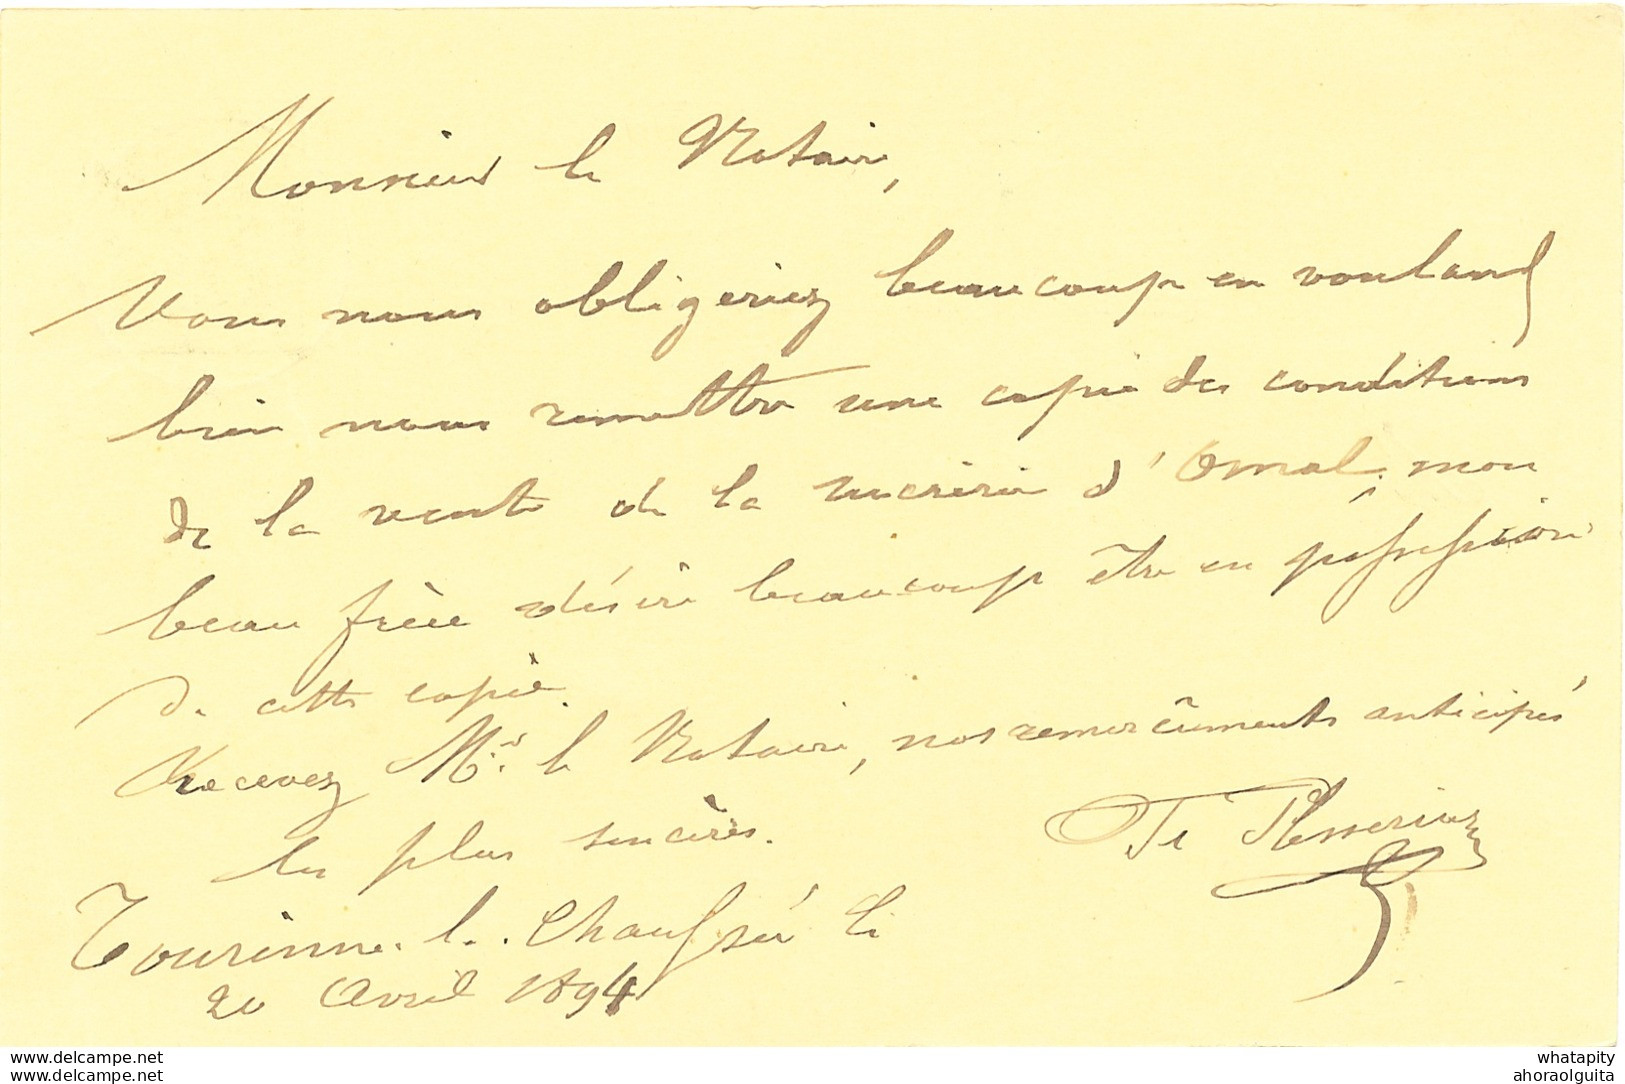 Monsieur le Notaire,
Vous nous obligeriez beaucoup en vouland
bien nous remettre une copie des conditions
de la vente de la sucrerie d'Omal, mon
beau frère désire beaucoup être en possession
de cette copie.
Recevez Mr. le Notaire, nos remercîments anticipés
les plus sincères.
Tourinne. la. Chaussée le
20 Avril 1894
www.delcampe.net
www.delcampe.net
whatapity
ahoraolguita